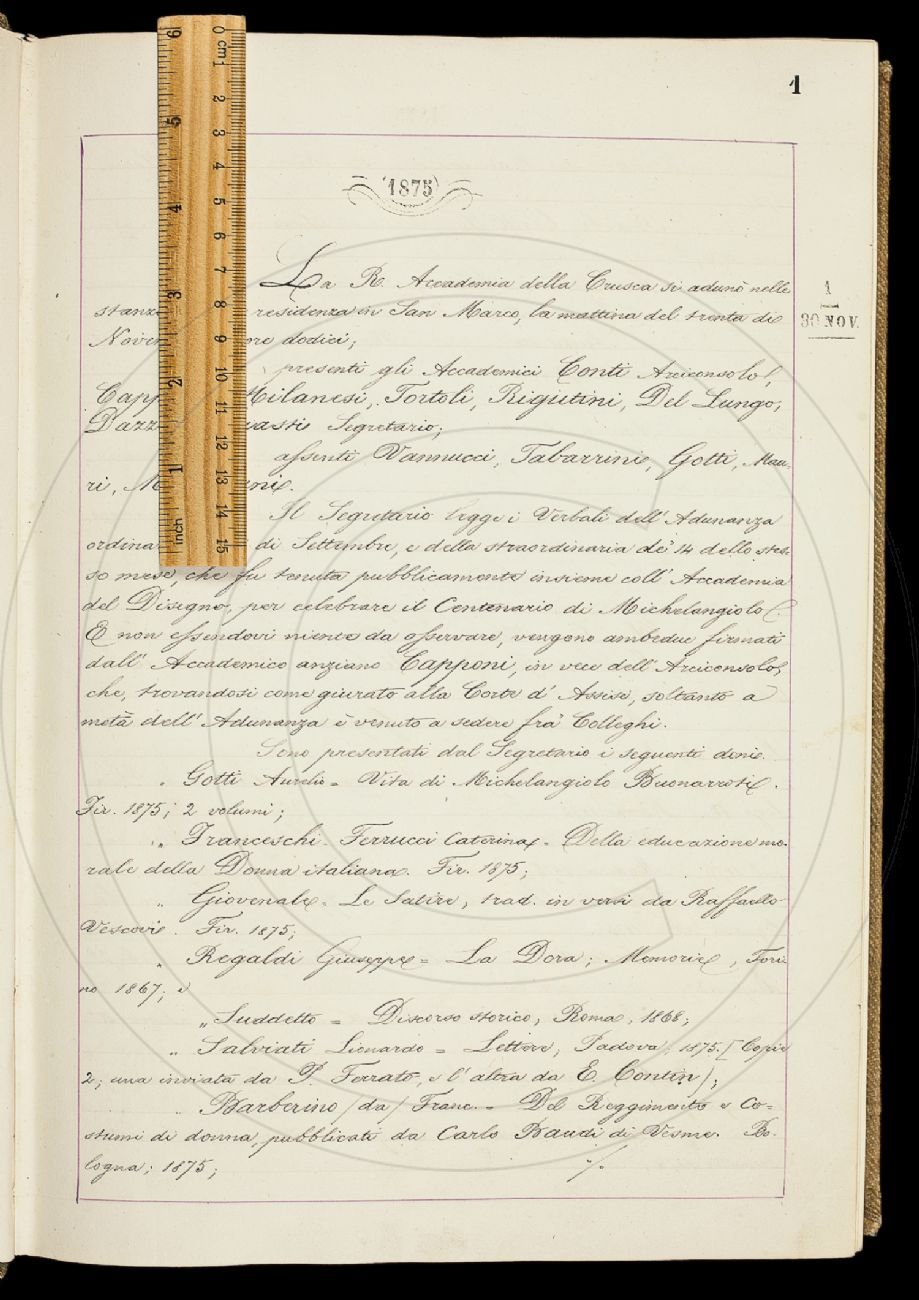 1
1875
La R. Accademia della Crusca si adunò nelle
stanz residenza in San Marco, la mattina del trenta di
Nove re dodici;
presenti gli Accademici Conti Arciconsolo,
Capp Milanesi, Tortoli, Rigutini, Del Lungo,
Dazz asti Segretario;
assenti Vannucci, Tabarrini, Gotti, Mau-
ri, M ni.
Il Segretario legge i Verbali dell'Adunanza
ordina di Settembre, e della straordinaria de' 14 dello stes-
so mese, che fu tenuta pubblicamente insieme coll'Accademia
del Disegno, per celebrare il Centenario di Michelangiolo.
E non essendovi niente da osservare, vengono ambedue firmati
dall'Accademico anziano Capponi, in vece dell'Arciconsolo,
che, trovandosi come giurato alla Corte d'Assise, soltanto a
metà dell'Adunanza è venuto a sedere fra' Colleghi.
Sono presentati dal Segretario i seguenti doni.
" Gotti Aurelio = Vita di Michelangiolo Buonarroti.
Fir. 1875; 2 volumi;
" Franceschi-Ferrucci Caterina = Della educazione mo-
rale della Donna italiana. Fir. 1875;
" Giovenale = Le Satire, trad. in versi da Raffaello
Vescovi. Fir. 1875;
" Regaldi Giuseppe = La Dora; Memorie, Tori-
no 1867; e
" Suddetto = Discorso storico, Roma, 1868;
" Salviati Lionardo = Lettere, Padova, 1875. [Copie
2; una inviata da P. Ferrato, e l'altra da E. Contin);
" Barberino /da/ Franc. = Del Reggimento e Co=
stumi di donna, pubblicati da Carlo Baudi di Vesme. Bo-
logna; 1875;
./.
1
30 NOV.
0 cm 1 2 3 4 5 6 7 8 9 10 11 12 13 14 15
6 5 4 3 2 1 inch